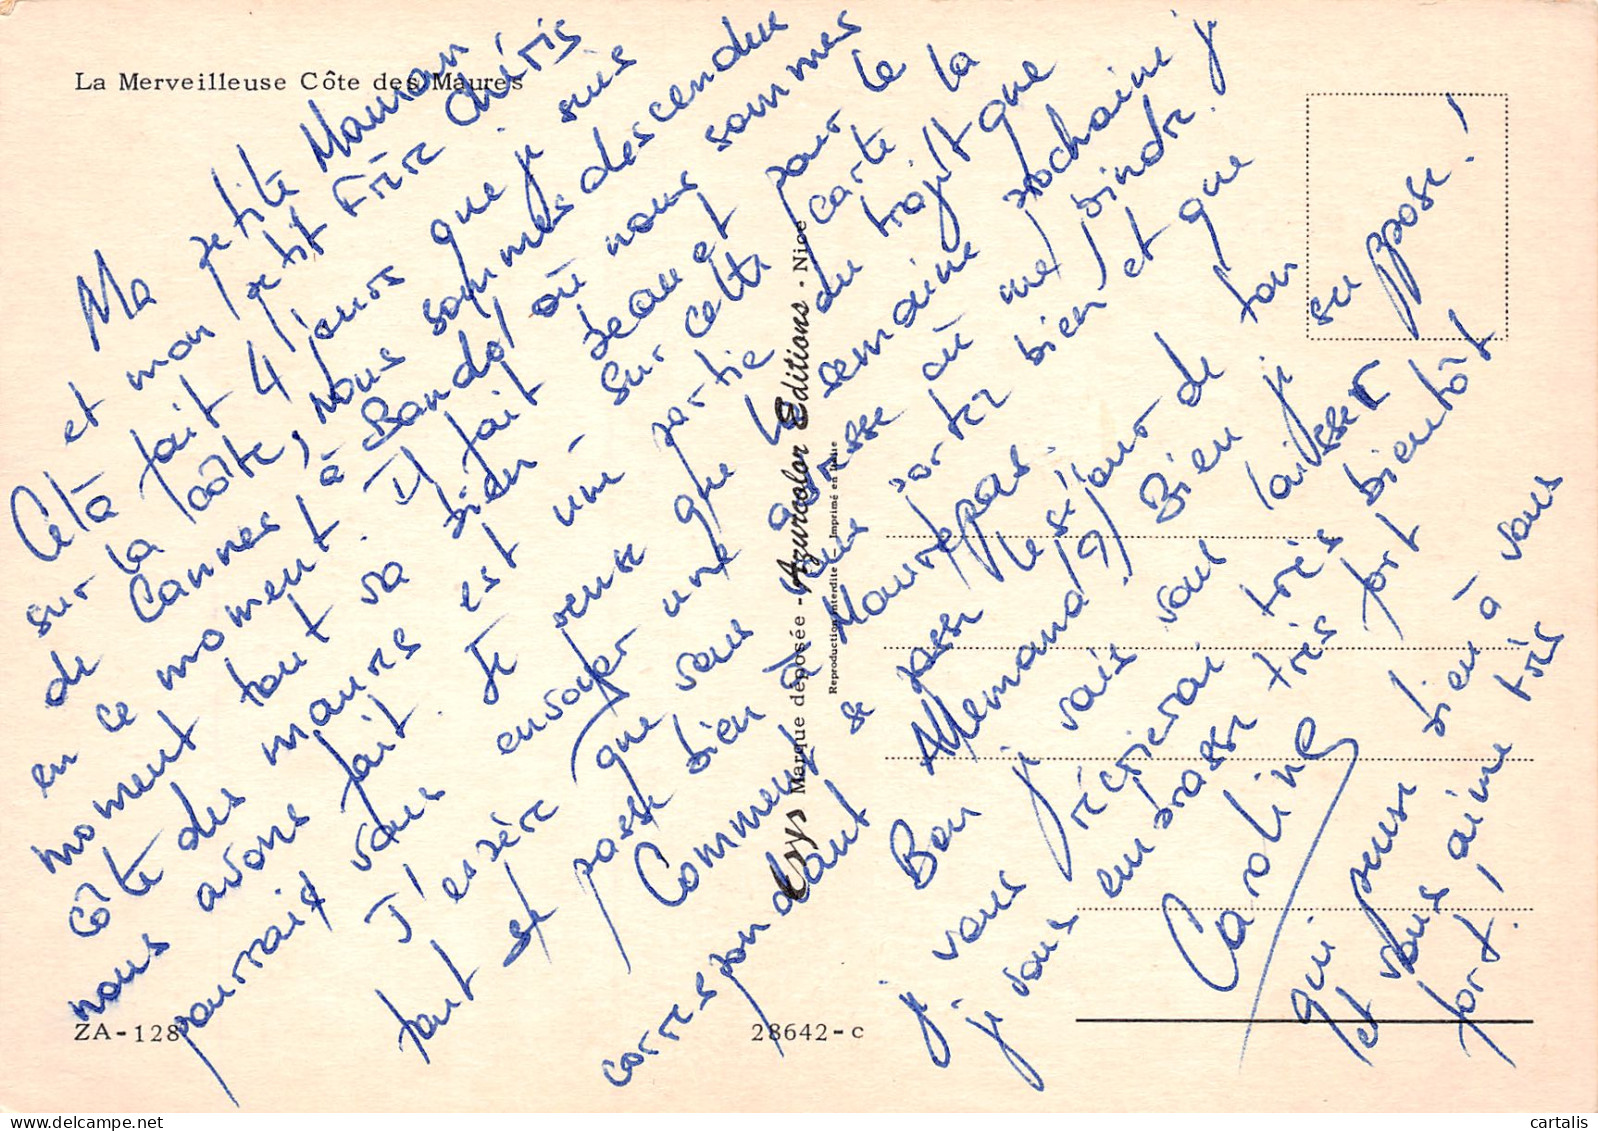 La Merveilleuse Côte des Maures
Ma petite Maman
et mon petit Frère chéris
Celà fait 4 jours que je suis
sur la côte, nous sommes descendu
de Cannes à Bandol où nous sommes
en ce moment. Il fait beau et pour le
moment tout va bien sur cette carte la
côte des maures est une partie du trajet que
nous avons fait. Je pense que la semaine prochaine je
pourrais vous envoyer une adresse où me joindre.
J'espère que vous vous portez bien et que
tout se passe bien à Maurepas.
Comment se passe le séjour de ton
correspondant Allemand? Bien je suppose!
Bon je vais vous laisser
je vous réécrierai très bientôt
je vous embrasse très très fort
Caroline
qui pense bien à vous
et vous aime très
fort!
Marque déposée - Azurcolor Editions - Nice
Reproduction interdite - Imprimé en Italie
ZA-128
28642-c
cartalis